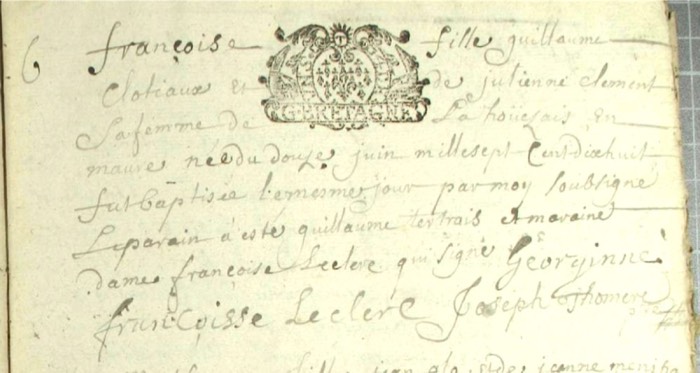 6 françoise fille guillaume
Clotiaux et de julienne Clement
G·BRETAGNE
Sa femme de La houssais En
maure née du douze juin mille sept Cent dixhuit
fut baptisée le mesme jour par moy soubsigné
Le parain a esté guillaume tertrais et maraine
dame françoise Leclerc qui signe Georginne
françoisse Leclere Joseph
fille jeanne